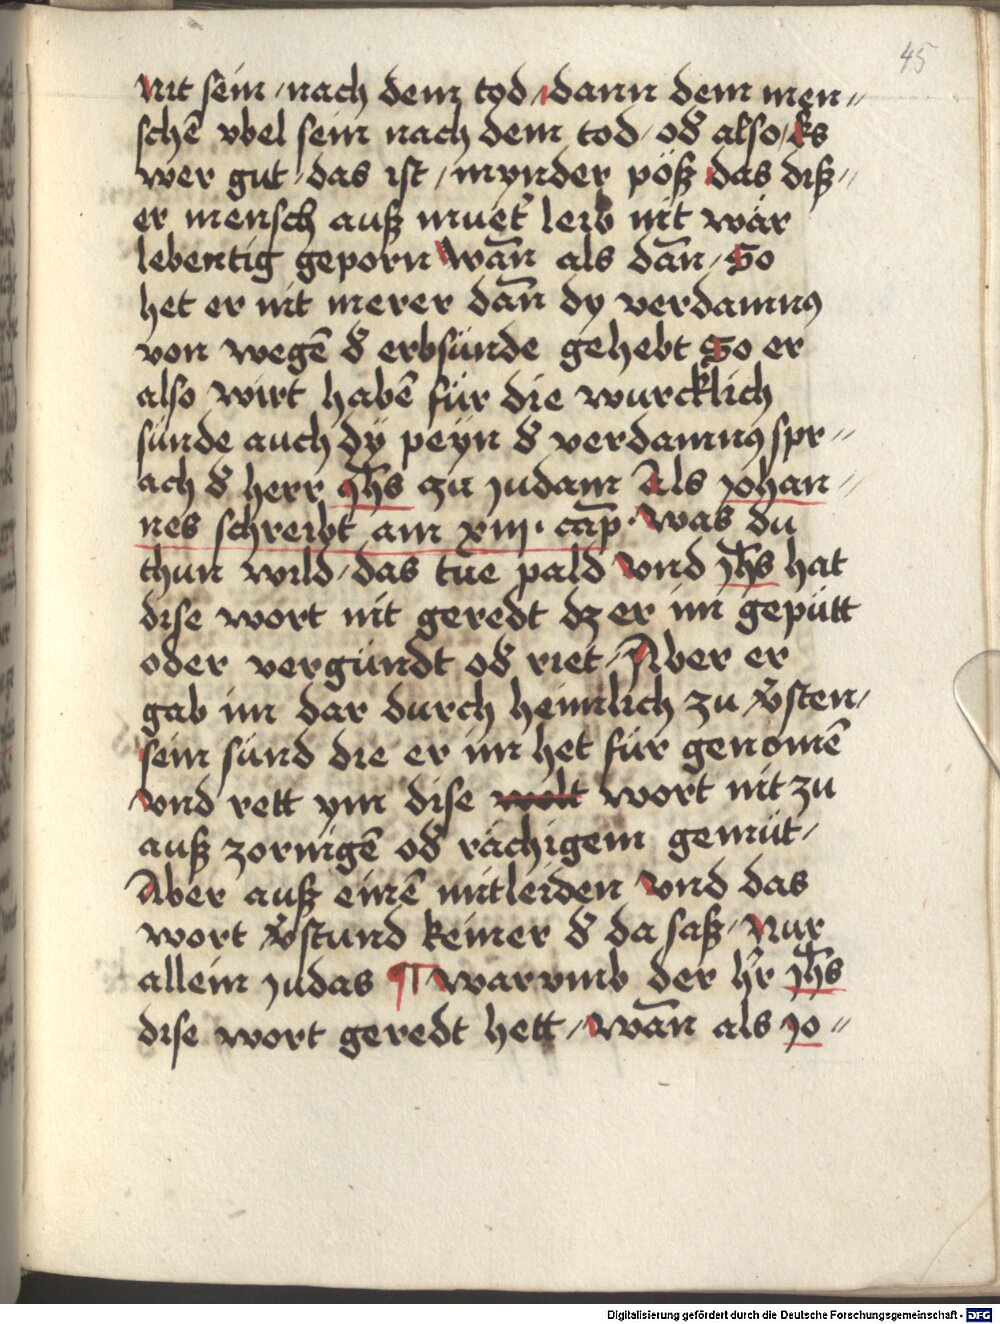 45
nit sein / nach dem tod / dann dem men //
schē vbel sein nach dem tod / od̄ also / Es
wer gut / das ist / mynder pöß das diß //
er mensch auß muet̄ leib nit wär
lebentig geporn Wān als dān / So
het er nit merer dān dy verdamnus
von wegē d̄ erbsünde gehebt So er
also wirt habē für die wurcklich
sünde auch dÿ peyn d̄ verdamnus spr //
ach d̄ herr jh̄s zu judam Als johan //
nes schreibt am xiii · cap̄ · Was du
thun wild / das tue pald Vnd jh̄s hat
dise wort nit geredt dz er im gepütt
oder vergündt od̄ riet / Aber er
gab im dar durch heimlich zu v̄sten /
sein sünd die er im het für genomē
Vnd rett ym dise wolt wort nit zu
auß zornigē od̄ rächigem gemüt /
Aber auß einē mitleiden Vnd das
wort v̄stund keiner d̄ da saß / Nur
allein judas ¶ Warvmb der hr̄ jh̄s
dise wort geredt hett / Wān als jo //
Digitalisierung gefördert durch die Deutsche Forschungsgemeinschaft - DFG